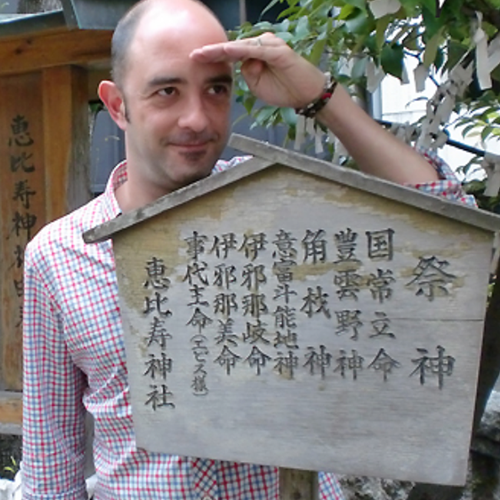 祭神
国常立命
豊雲野神
角杙神
意富斗能地神
伊邪那岐命
伊邪那美命
事代主命(エビス様)
恵比寿神社
恵比寿神社